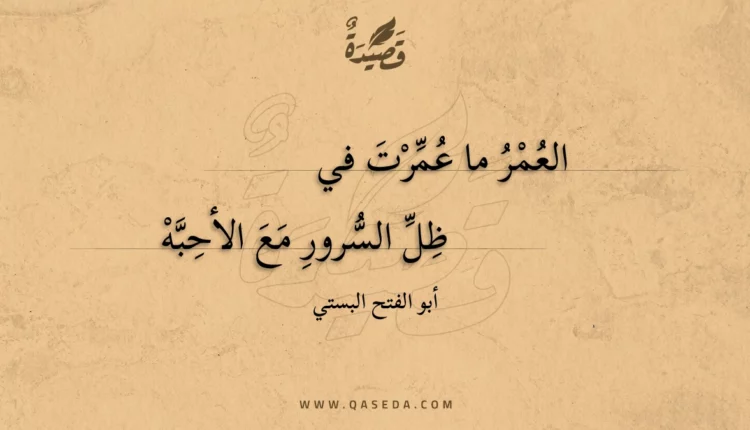 قَصِيدَةٌ
العُمْرُ ما عُمِّرْتَ في
ظِلِّ السُّرورِ مَعَ الأحِبَّهْ
أبو الفتح البستي
WWW.QASEDA.COM